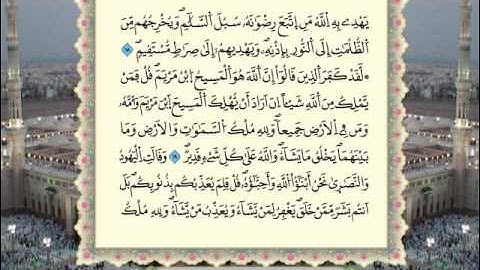 يَهْدِے بِهِ اِ۬للَّهُ مَنِ اِ۪تَّبَعَ رِضْوَٰنَهُۥ سُبُلَ اَ۬لسَّلَٰمِ وَيُخْرِجُهُم مِّنَ
اَ۬لظُّلُمَٰتِ إِلَى اَ۬لنُّورِ بِإِذْنِهِۦ وَيَهْدِيهِمُۥٓ إِلَىٰ صِرَٰطٖ مُّسْتَقِيمٖ ١٨
لَّقَدْ كَفَرَ اَ۬لذِينَ قَالُوٓاْ إِنَّ اَ۬للَّهَ هُوَ اَ۬لْمَسِيحُ اُ۪بْنُ مَرْيَمَ قُلْ فَمَنْ
يَّمْلِكُ مِنَ اَ۬للَّهِ شَيْـٔاً اِنَ اَرَادَ أَنْ يُّهْلِكَ اَ۬لْمَسِيحَ اَ۪بْنَ مَرْيَمَ وَأُمَّهُۥ
وَمَن فِے اِ۬لَارْضِ جَمِيعاٗ وَلِلهِ مُلْكُ اُ۬لسَّمَٰوَٰتِ وَالَارْضِ وَمَا
بَيْنَهُمَا يَخْلُقُ مَا يَشَآءُ وَاللَّهُ عَلَىٰ كُلِّ شَےْءٖ قَدِيرٞ ١٩ وَقَالَتِ اِ۬لْيَهُودُ
وَالنَّصَٰرَىٰ نَحْنُ أَبْنَٰٓؤُاْ اُ۬للَّهِ وَأَحِبَّٰٓؤُهُۥ قُلْ فَلِمَ يُعَذِّبُكُم بِذُنُوبِكُم بَلَ
اَنتُم بَشَرٞ مِّمَّنْ خَلَقَ يَغْفِرُ لِمَنْ يَّشَآءُ وَيُعَذِّبُ مَنْ يَّشَآءُ وَلِلهِ مُلْكُ